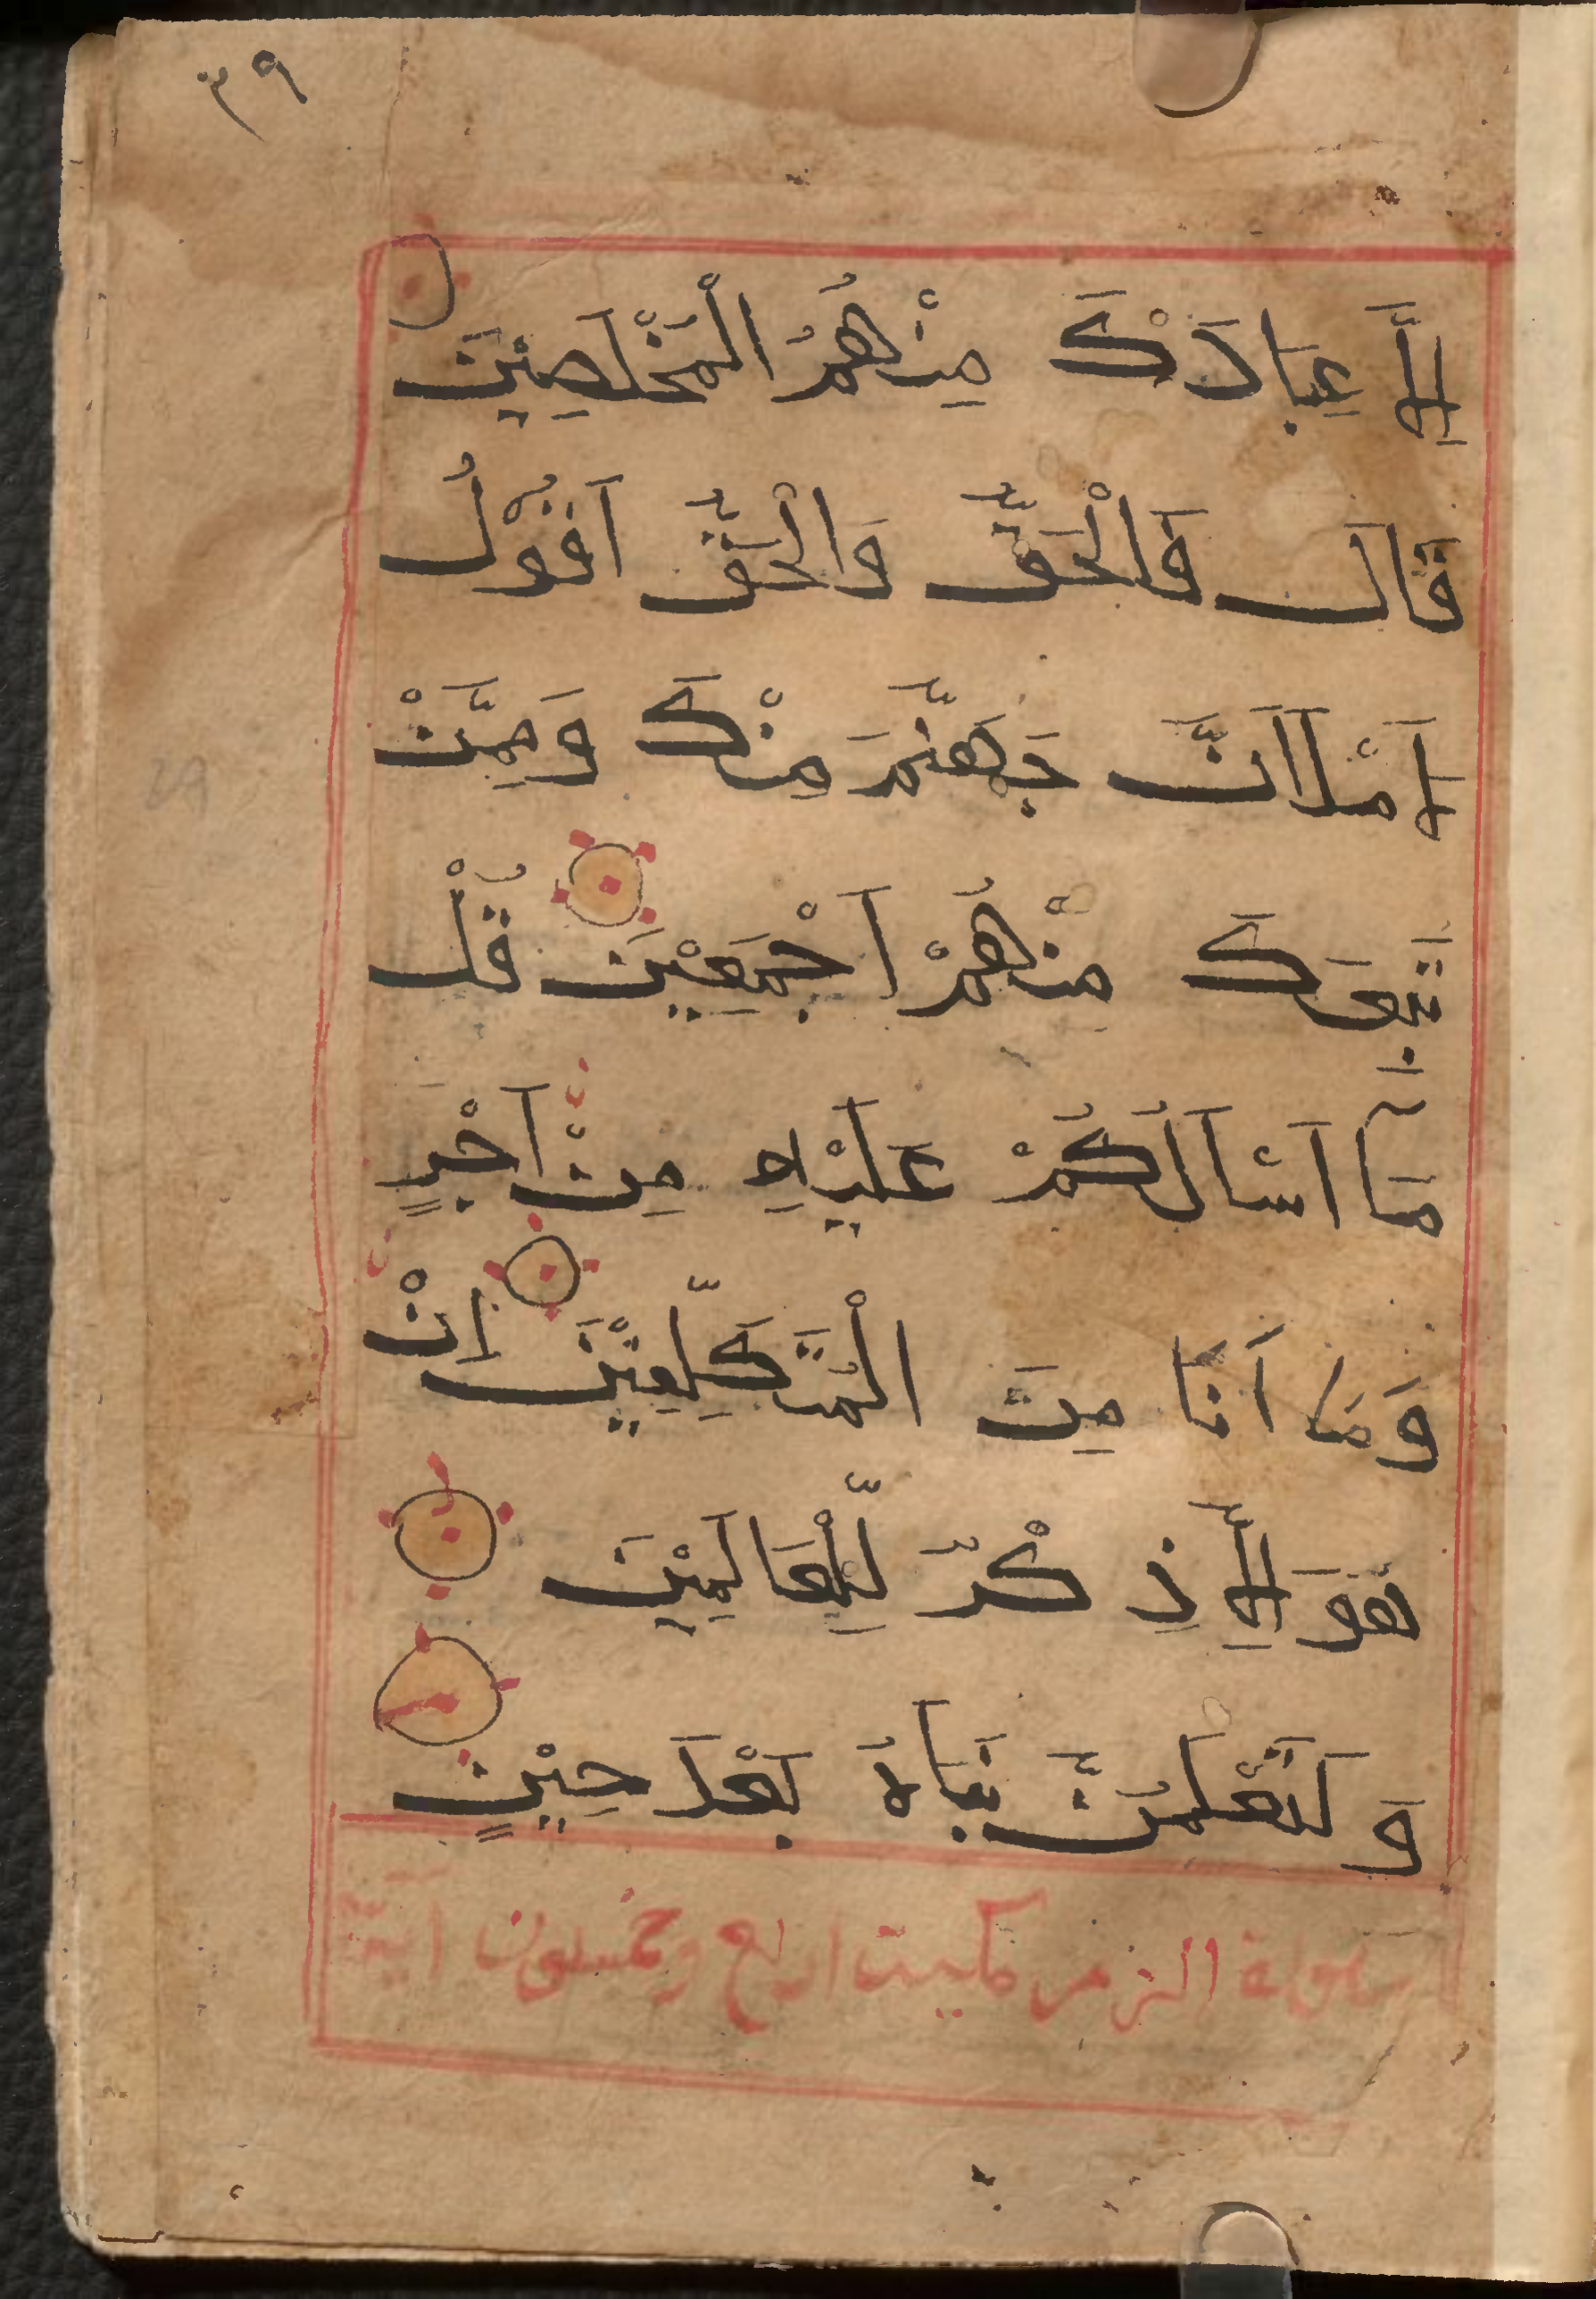 ٣٩
اِلَّا عِبَادَكَ مِنْهُمُ الْمُخْلَصِيْنَ
قَالَ فَالْحَقُّ وَالْحَقَّ اَقُوْلُ
لَاَمْلَاَنَّ جَهَنَّمَ مِنْكَ وَمِمَّنْ
تَبِعَكَ مِنْهُمْ اَجْمَعِيْنَ قُلْ
مَا اَسْاَلُكُمْ عَلَيْهِ مِنْ اَجْرٍ
وَمَا اَنَا مِنَ الْمُتَكَلِّفِيْنَ اِنْ
هُوَ اِلَّا ذِكْرٌ لِّلْعَالَمِيْنَ
وَلَتَعْلَمُنَّ نَبَاَهُ بَعْدَ حِيْنٍ
سورة الزمر مكيت اربع وخمسون اية